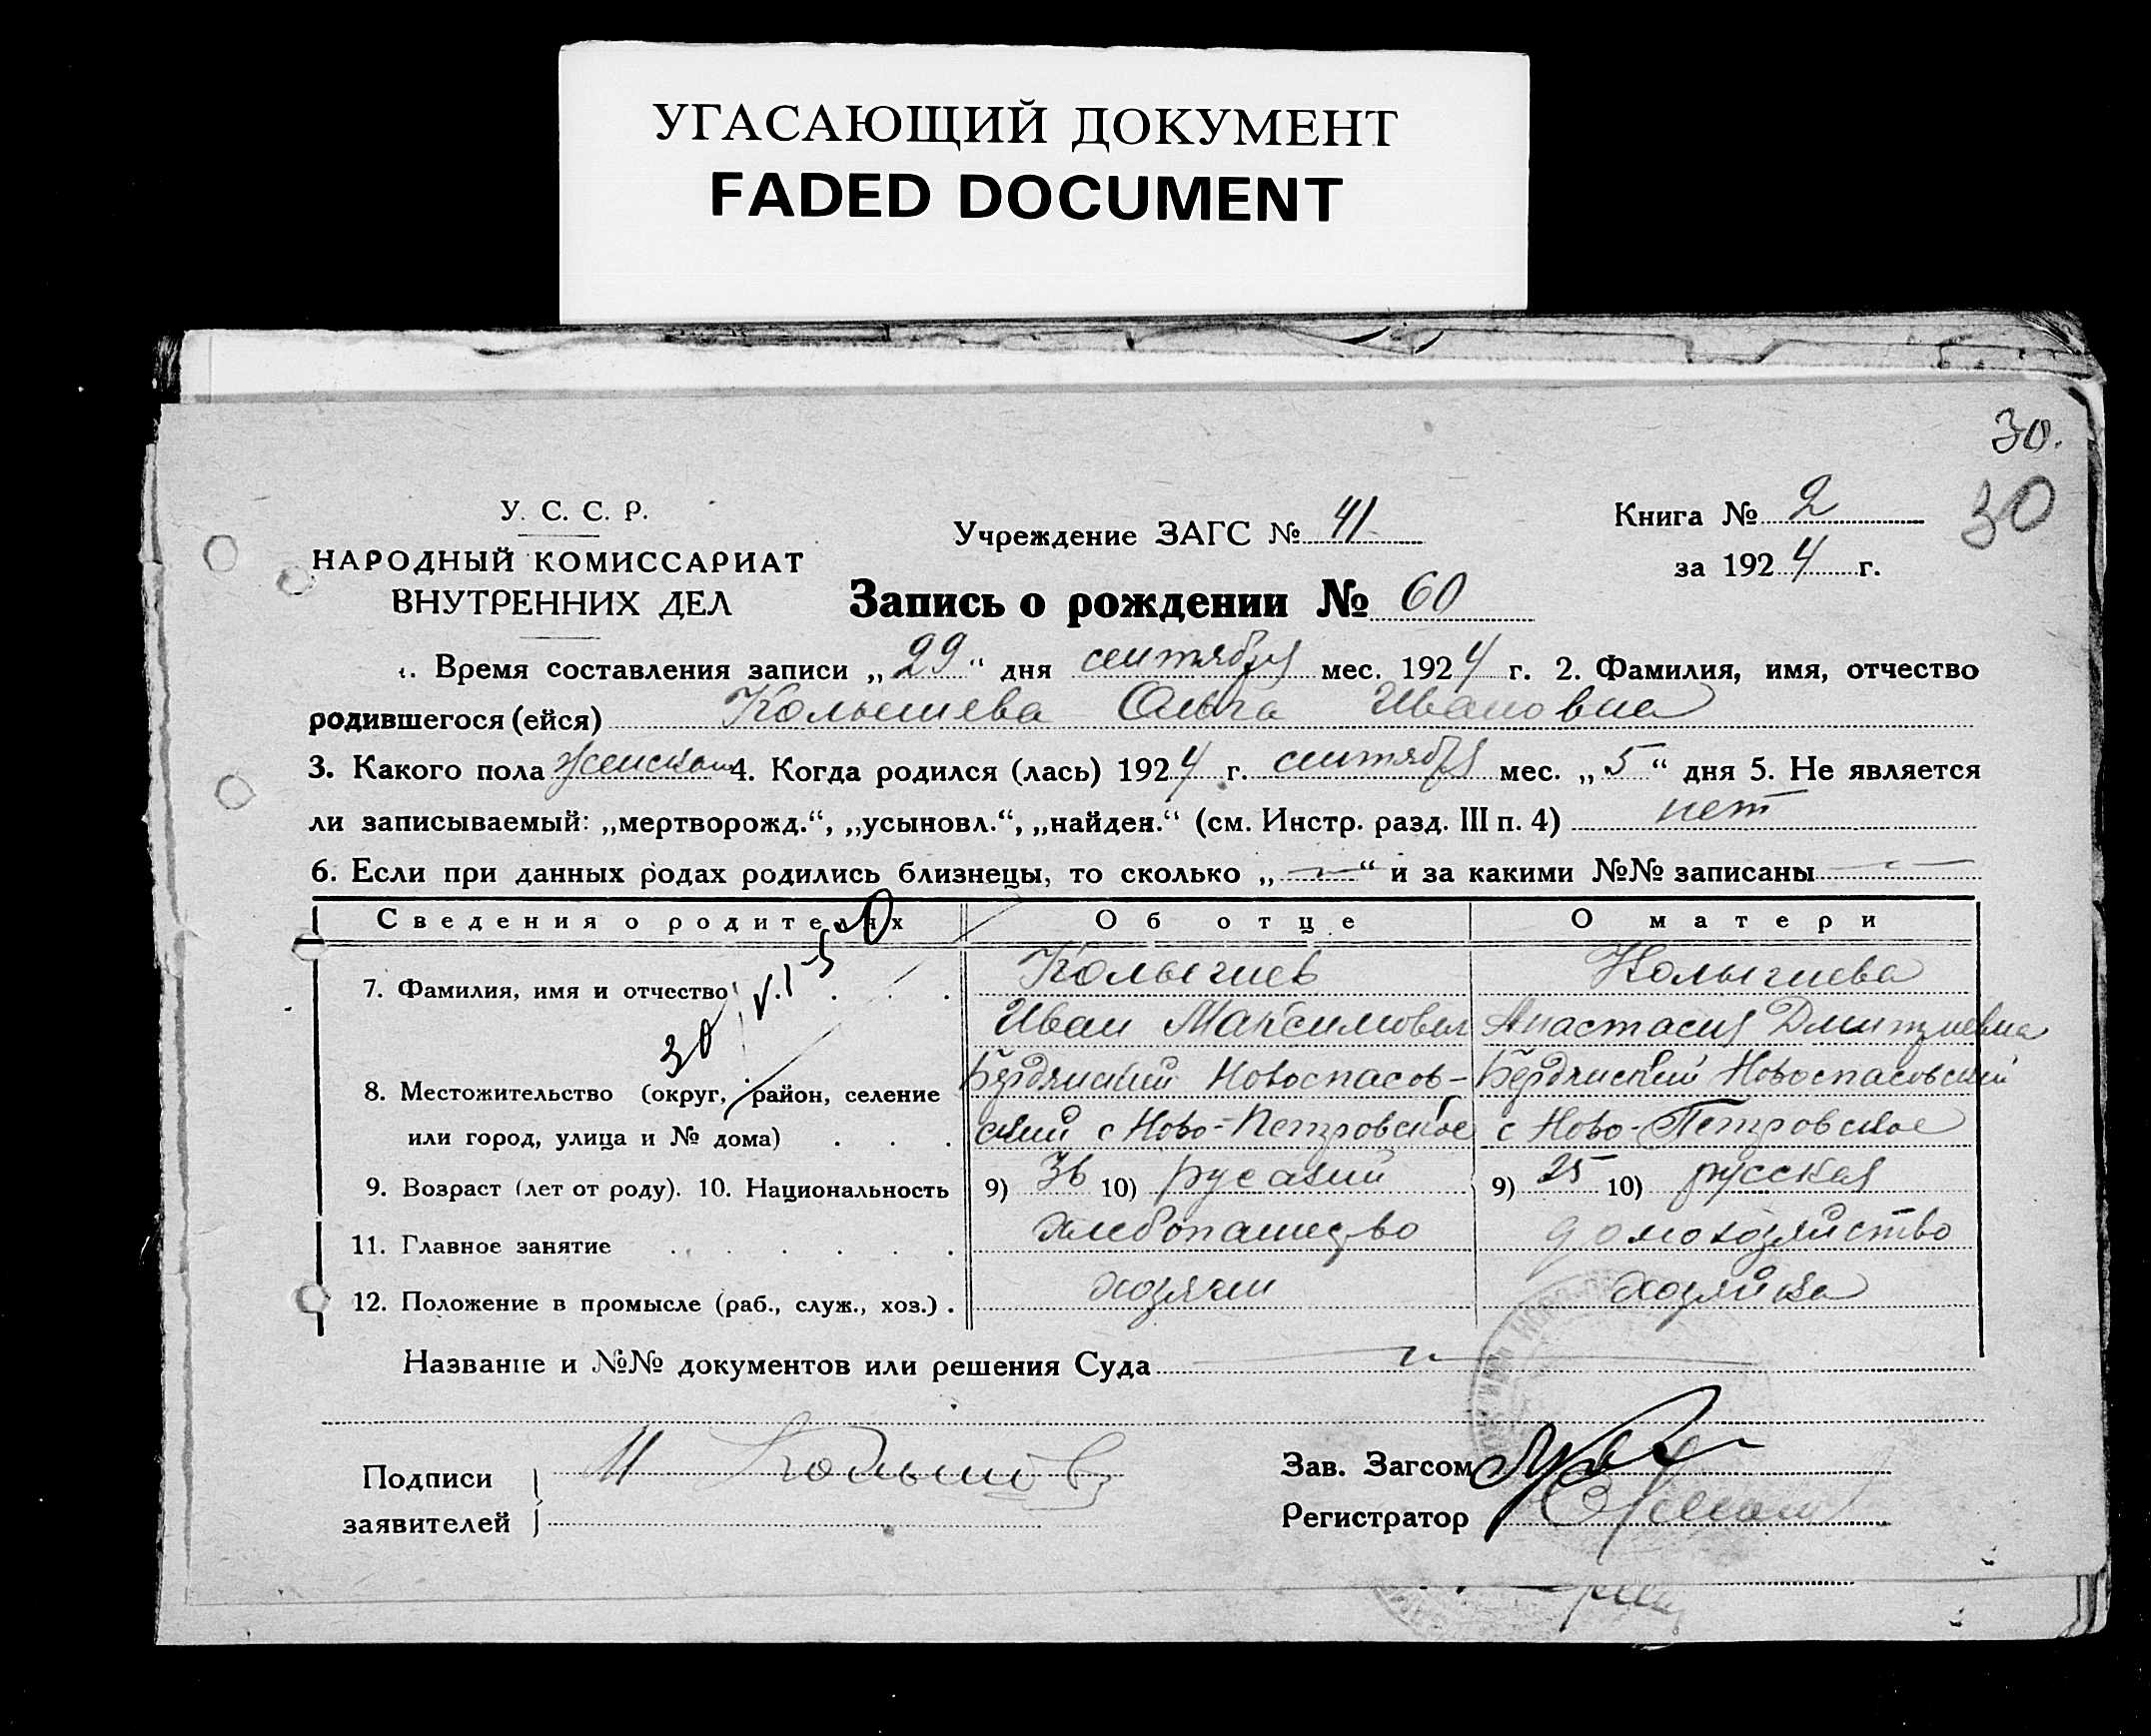 УГАСАЮЩИЙ ДОКУМЕНТ
FADED DOCUMENT
30.
30
У. С. С. Р.
НАРОДНЫЙ КОМИССАРИАТ
ВНУТРЕННИХ ДЕЛ
Учреждение ЗАГС № 41
Книга № 2
за 1924 г.
Запись о рождении № 60
1. Время составления записи „29“ дня сентября мес. 1924 г. 2. Фамилия, имя, отчество
родившегося (ейся) Колышева Ольга Ивановна
3. Какого пола женского 4. Когда родился (лась) 1924 г. сентября мес. „5“ дня 5. Не является
ли записываемый: „мертворожд.“, „усыновл.“, „найден.“ (см. Инстр. разд. III п. 4) нет
6. Если при данных родах родились близнецы, то сколько „—“ и за какими №№ записаны —
Сведения о родителях Об отце О матери
7. Фамилия, имя и отчество Колышев Колышева
Иван Максимович Анастасия Дмитриевна
30
8. Местожительство (округ, район, селение Бердянский Новоспасов- Бердянский Новоспасовский
или город, улица и № дома) ский с Ново-Петровское с Ново-Петровское
9. Возраст (лет от роду). 10. Национальность 9) 36 10) русский 9) 25 10) русская
11. Главное занятие хлебопашество домохозяйство
12. Положение в промысле (раб., служ., хоз.) хозяин хозяйка
Название и №№ документов или решения Суда —
Подписи заявителей И Колышов
Зав. Загсом
Регистратор